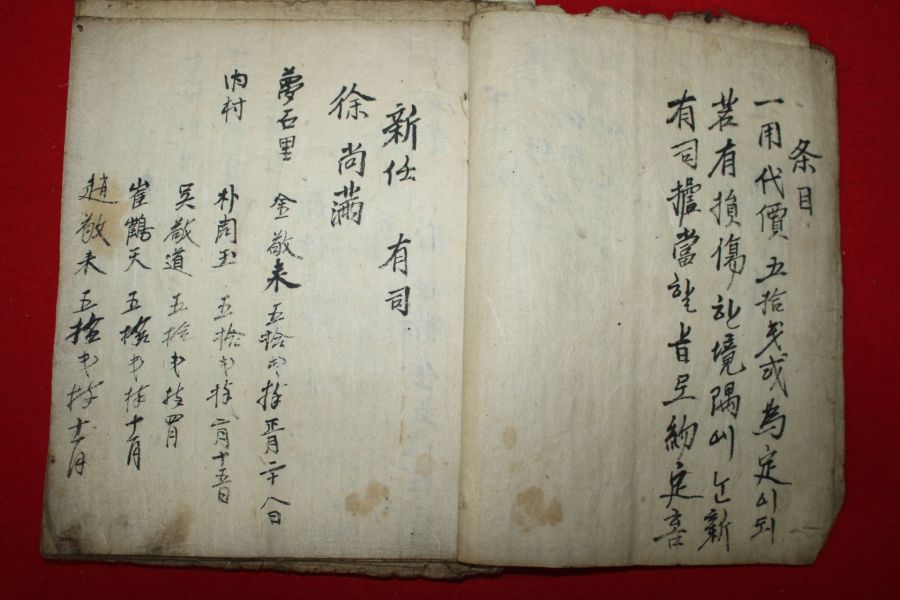 条目
一用代價五拾戔或為定이되
若有損傷한境隅에는新
有司擔當할 旨로約定홈
新任 有司
徐尚滿
夢石里 金敬来 五拾 捧 正月二十八日
內村 朴周玉 五拾 捧 二月十五日
吳敬道 五拾 捧 四月
崔鶴天 五拾 捧 十一月
趙敬来 五拾 捧 十二月